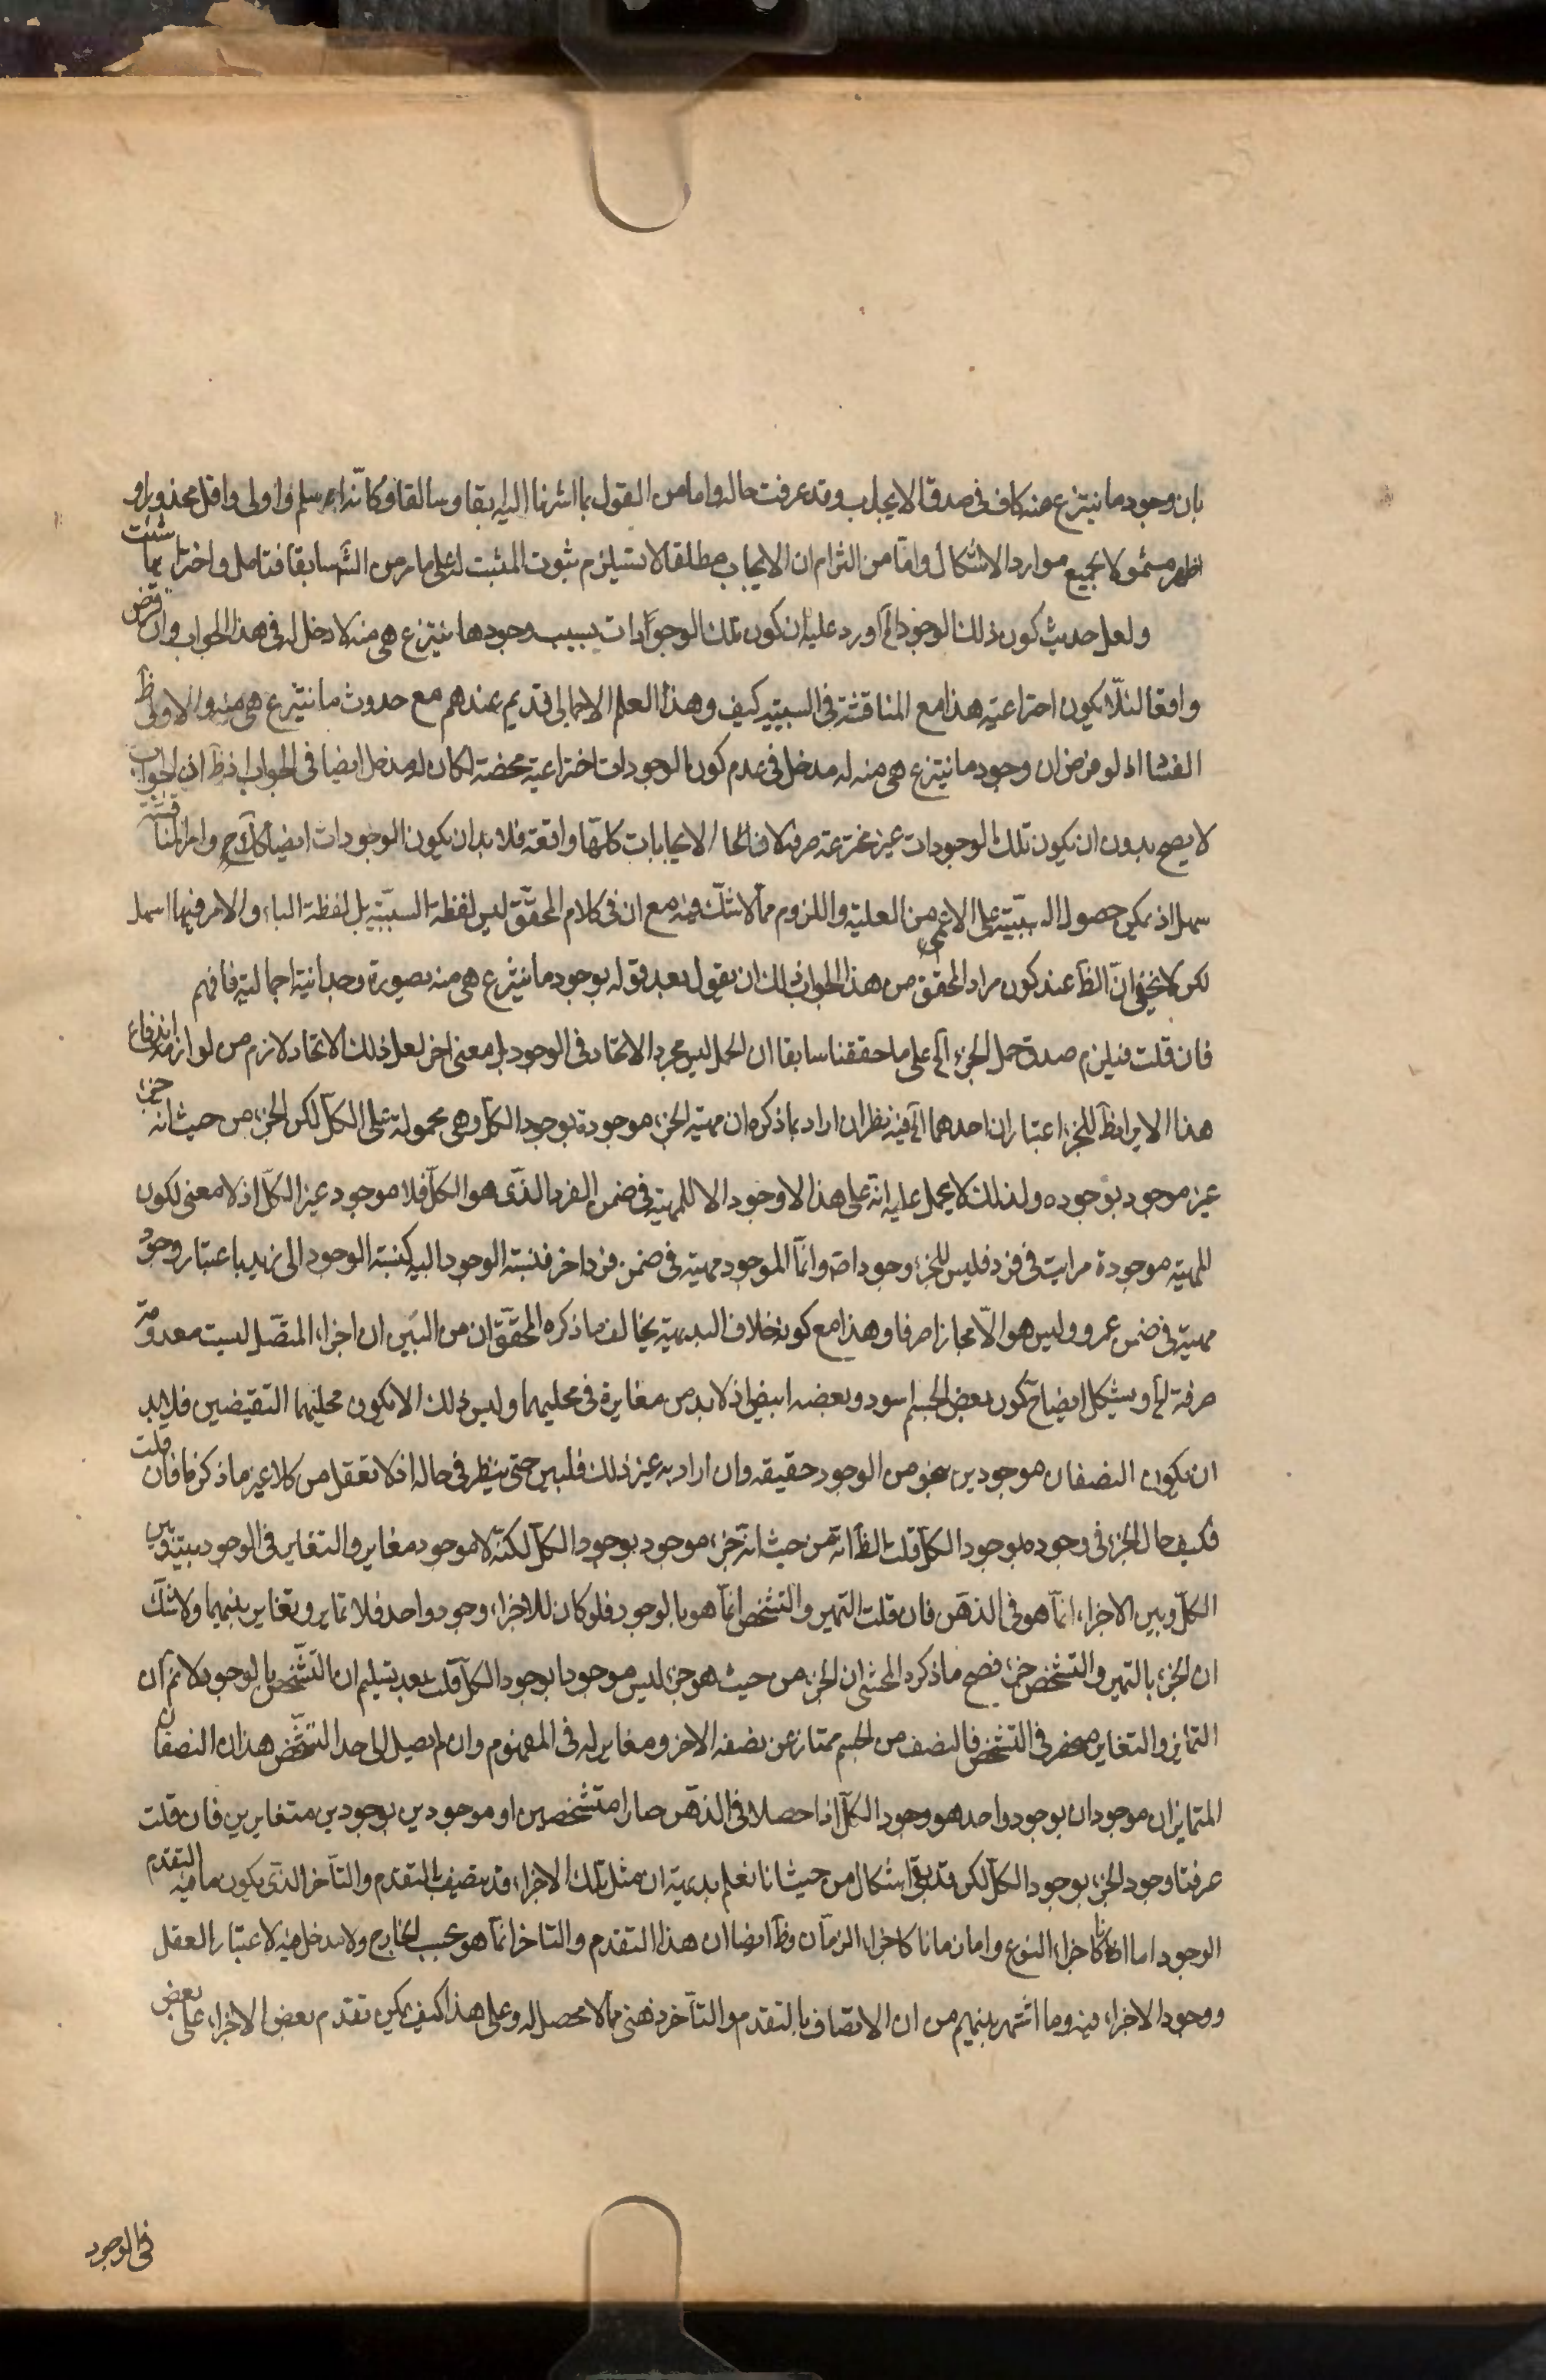 بان وجود ما ينتزع منه كاف فى صدق الايجاب وقد عرفت حاله واما من القول بما اشرنا اليه سابقا وسالفا وكانه اسلم واولى واقل محذورا و
اظهر شمولا بجميع موارد الاشكال واما من التزام ان الايجاب مطلقا لا يستلزم ثبوت المثبت له على ما مر من الش سابقا فتامل واختر ايما شئت
ولعل حديث كون ذلك الوجود الخ اورد عليه ان كون تلك الوجودات بسبب وجود ما ينتزع هى منه لا دخل له فى هذا الجواب وان فرض
واقعا لئلا يكون اختراعية هذا مع المناقشة فى السببية كيف وهذا العلم الاجمالى قديم عندهم مع حدوث ما ينتزع هى منه والاولى ظ
الفشا اذ لو فرض ان وجود ما ينتزع هى منه له مدخل فى عدم كون الوجودات اختراعية محضة لكان له مدخل ايضا فى الجواب اذ ظ ان الجواب
لا يصح بدون ان يكون تلك الوجودات غير مخترعة صرفة الايجابات كلها واقعة فلا بد ان يكون الوجودات ايضا كك ح واما المناقشة
سهل اذ يمكن حصول السببية على الاعم من العلية واللزوم مما لا شك فيه مع ان فى كلام المحقق ليس لفظة السببية بل لفظة الباء والامر فيها اسهل
لكن لا يخفى ان الظ عند كون مراد المحقق من هذا الجواب ذلك ان يقول بعد قوله بوجود ما ينتزع هى منه بصورة وحدانية اجمالية فافهم
فان قلت فيلزم صدق حمل الجزء الخ على ما حققنا سابقا ان الحمل ليس مجرد الاتحاد فى الوجود بل معنى اخر لعل ذلك الاتحاد لازم من لوازمه اندفاع
هذا الايراد ظ للجزء اعتباران احدهما الخ فيه نظر ان اراد بما ذكره ان مهية الجزء موجودة بوجود الكل وهى محمولة على الكل لكن الجزء من حيث انه جزء
غير موجود بوجوده ولذلك لا يحمل عليه انه على هذا لا وجود الا للمهية فى ضمن الفرد الذى هو الكل فلا موجود غير الكل اذ لا معنى لكون
المهية موجودة مرات فى فرد فليس للجزء وجود اصه وانما الموجود مهيته فى ضمن فرد اخر فنسبة الوجود اليه كنسبة الوجود الى زيد باعتبار وجود
مهيته فى ضمن عمرو وليس هو الا مجازا صرفا وهذا مع كونه خلاف البديهية يخالف ما ذكره المحقق ان من البين ان اجزاء المتصل ليست معدومة
صرفة الخ ويشكل ايضا ح كون بعض الجسم اسود وبعضه ابيض اذ لا بد من مغايرة فى محليهما وليس ذلك الا بكون محليهما النقيضين فلا بد
ان يكون النصفان موجودين بنحو من الوجود حقيقة وان اراد به غير ذلك فليبين حتى ينظر فى حاله اذ لا تعقل من كلا غير ما ذكرنا فان قلت
فكيف حال الجزء فى وجوده بوجود الكل قلت الظ انه من حيث انه جزء موجود بوجود الكل لكنه لا موجود مغاير والتغاير فى الوجود بينه وبين
الكل وبين الاجزاء انما هو فى الذهن فان قلت التميز والتشخص انما هو بالوجود فلو كان للاجزاء وجود واحد فلا تمايز وتغاير بينهما ولا شك
ان الجزء بالتميز والتشخص جزء فصح ما ذكره المحشى ان الجزء من حيث هو جزء ليس موجودا بوجود الكل قلت بعد تسليم ان التشخص بالوجود لا نم ان
التمايز والتغاير منحصر فى التشخص فالنصف من الجسم ممتاز عن نصفه الاخر ومغاير له فى المفهوم وان لم يصل الى احد التشخص هذان النصفان
المتمايزان موجودان بوجود واحد هو وجود الكل اذا حصلا فى الذهن صارا متشخصين او موجودين بوجودين متغايرين فان قلت
عرفنا وجود الجزء بوجود الكل لكن قد بقى اشكال من حيث انا نعلم بديهية ان مثل تلك الاجزاء قد يتصف بالتقدم والتأخر الذى يكون ما فيه التقدم
الوجود اما انا كاجزاء النوع واما زمانا كاجزاء الزمان وظ ايضا ان هذا التقدم والتاخر انما هو بحسب الخارج ولا مدخل فيه لاعتبار العقل
ووجود الاجزاء فيه وما اشتهر بينهم من ان الاتصاف بالتقدم والتأخر ذهنى مما لا محصل له وعلى هذا كيف يمكن تقدم بعض الاجزاء على بعض
فى الوجود